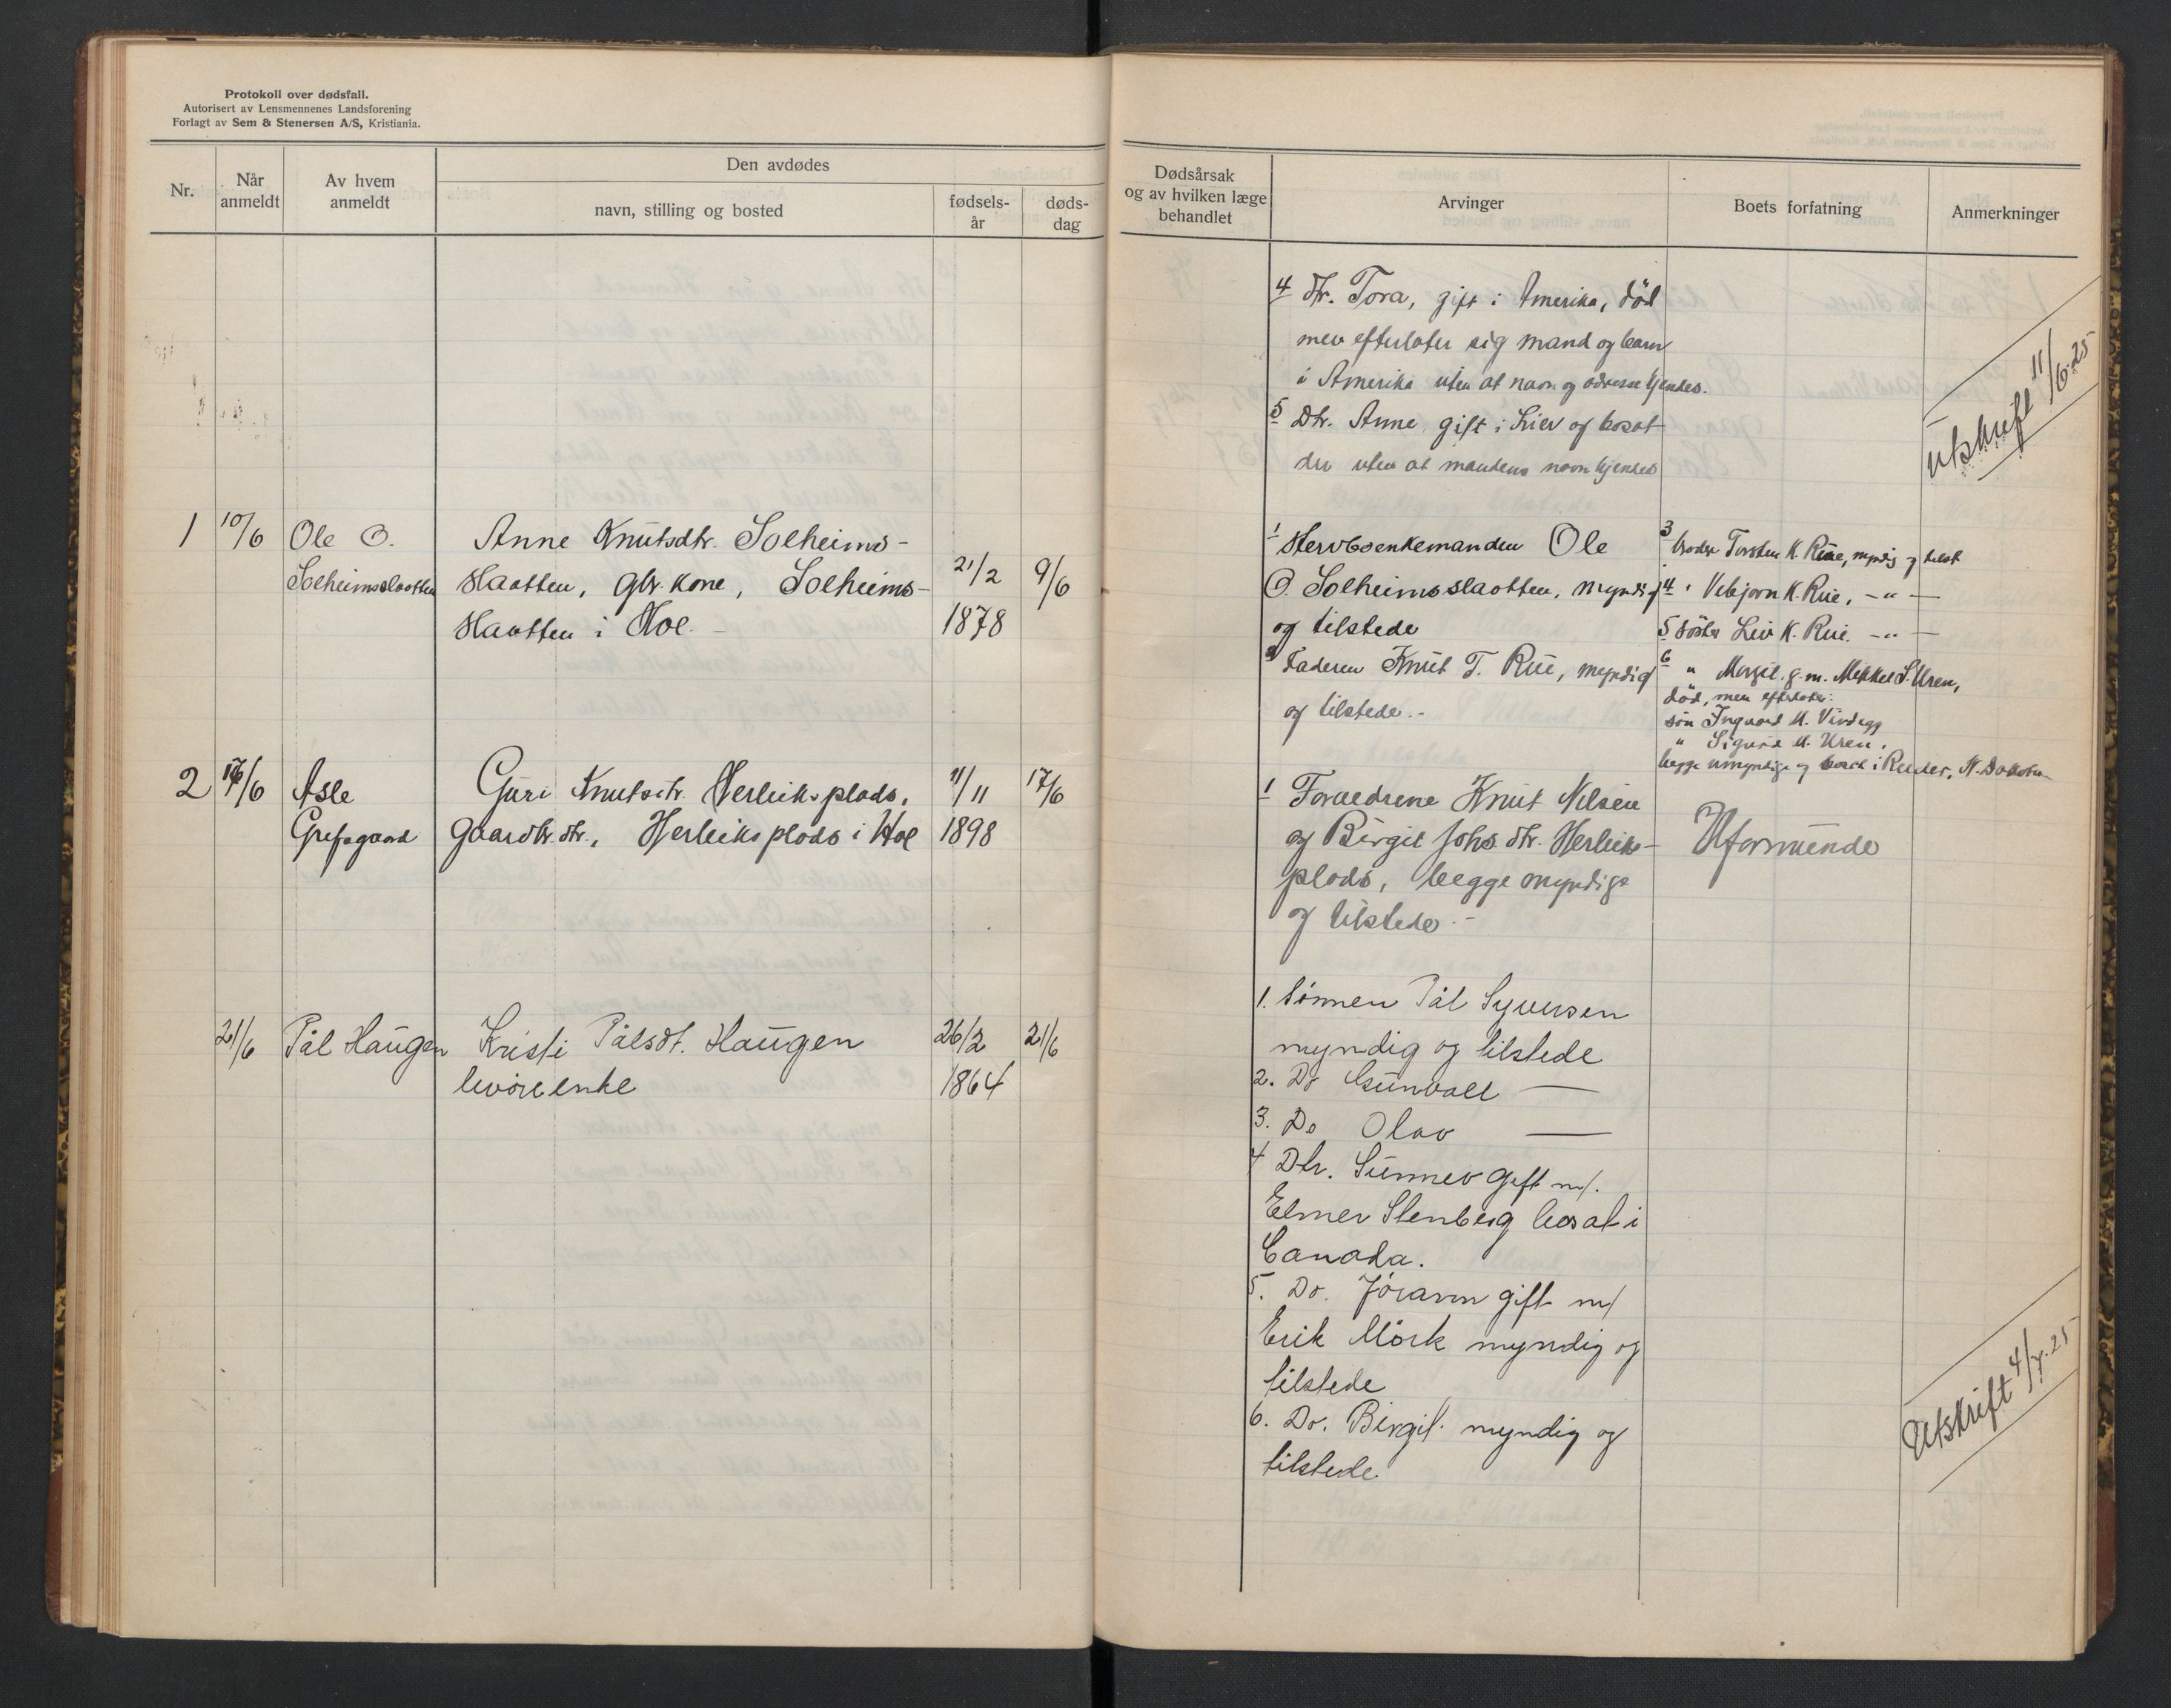 Protokoll over dødsfall.
Autorisert av Lensmennenes Landsforening
Forlagt av Sem & Stenersen A/S, Kristiania.
Nr.
Når anmeldt
Av hvem anmeldt
Den avdødes
navn, stilling og bosted
fødsels-
år
døds-
dag
Dødsårsak
og av hvilken læge
behandlet
Arvinger
Boets forfatning
Anmerkninger
4 Dtr. Tora, gift i Amerika, død
men efterlater sig mand og barn
i Amerika uten at navn og adresse kjendes.
5 Dtr. Anne gift i Lier og bosat
der uten at mandens navn kjendes
Utskrift 11/6.25
1 10/6 Ole O.
Solheimsslaatten
Anne Knutsdtr. Solheims-
slaatten, gbr. kone, Solheims-
slaatten i Hol.
21/2
1878
9/6
1 Stervboenkemanden Ole
O. Solheimsslaatten, myndig
og tilstede
2 Faderen Knut T. Rue, myndig
og tilstede.-
3 broder Torsten K. Rue, myndig og tilst
4 " Vebjørn K. Rue, -"-
5 søster Liv K. Rue. -"-
6 " Margit, g.m. Mikkel S. Uren,
død, men efterlater:
søn Ingvald M. Vindegg
" Sigurd M. Uren,
begge umyndige og bosat i Reeder, N. Dakota
2 17/6 Asle
Grefsgaard
Guri Knutsdtr. Herleiksplads,
gaardbr. dtr., Herleiksplads i Hol
11/11
1898
17/6
1 Foreldrene Knut Nilsen
og Birgit Johs. dtr. Herleiks-
plads, begge myndige
og tilstede.-
Uformuende
21/6 Pål Haugen
Kristi Pålsdt. Haugen
enke
26/2
1864
21/6
1. Sønnen Pål Syversen
myndig og tilstede
2. Do Gunvald —
3. Do Olav —
4 Dtr. Sunnev gift m/.
Elmer Stenberg bosat i
Canada.
5. Do. Jørann gift m/
Erik Mørk myndig og
tilstede
6. Do. Birgit myndig og
tilstede
Utskrift 4/7.25